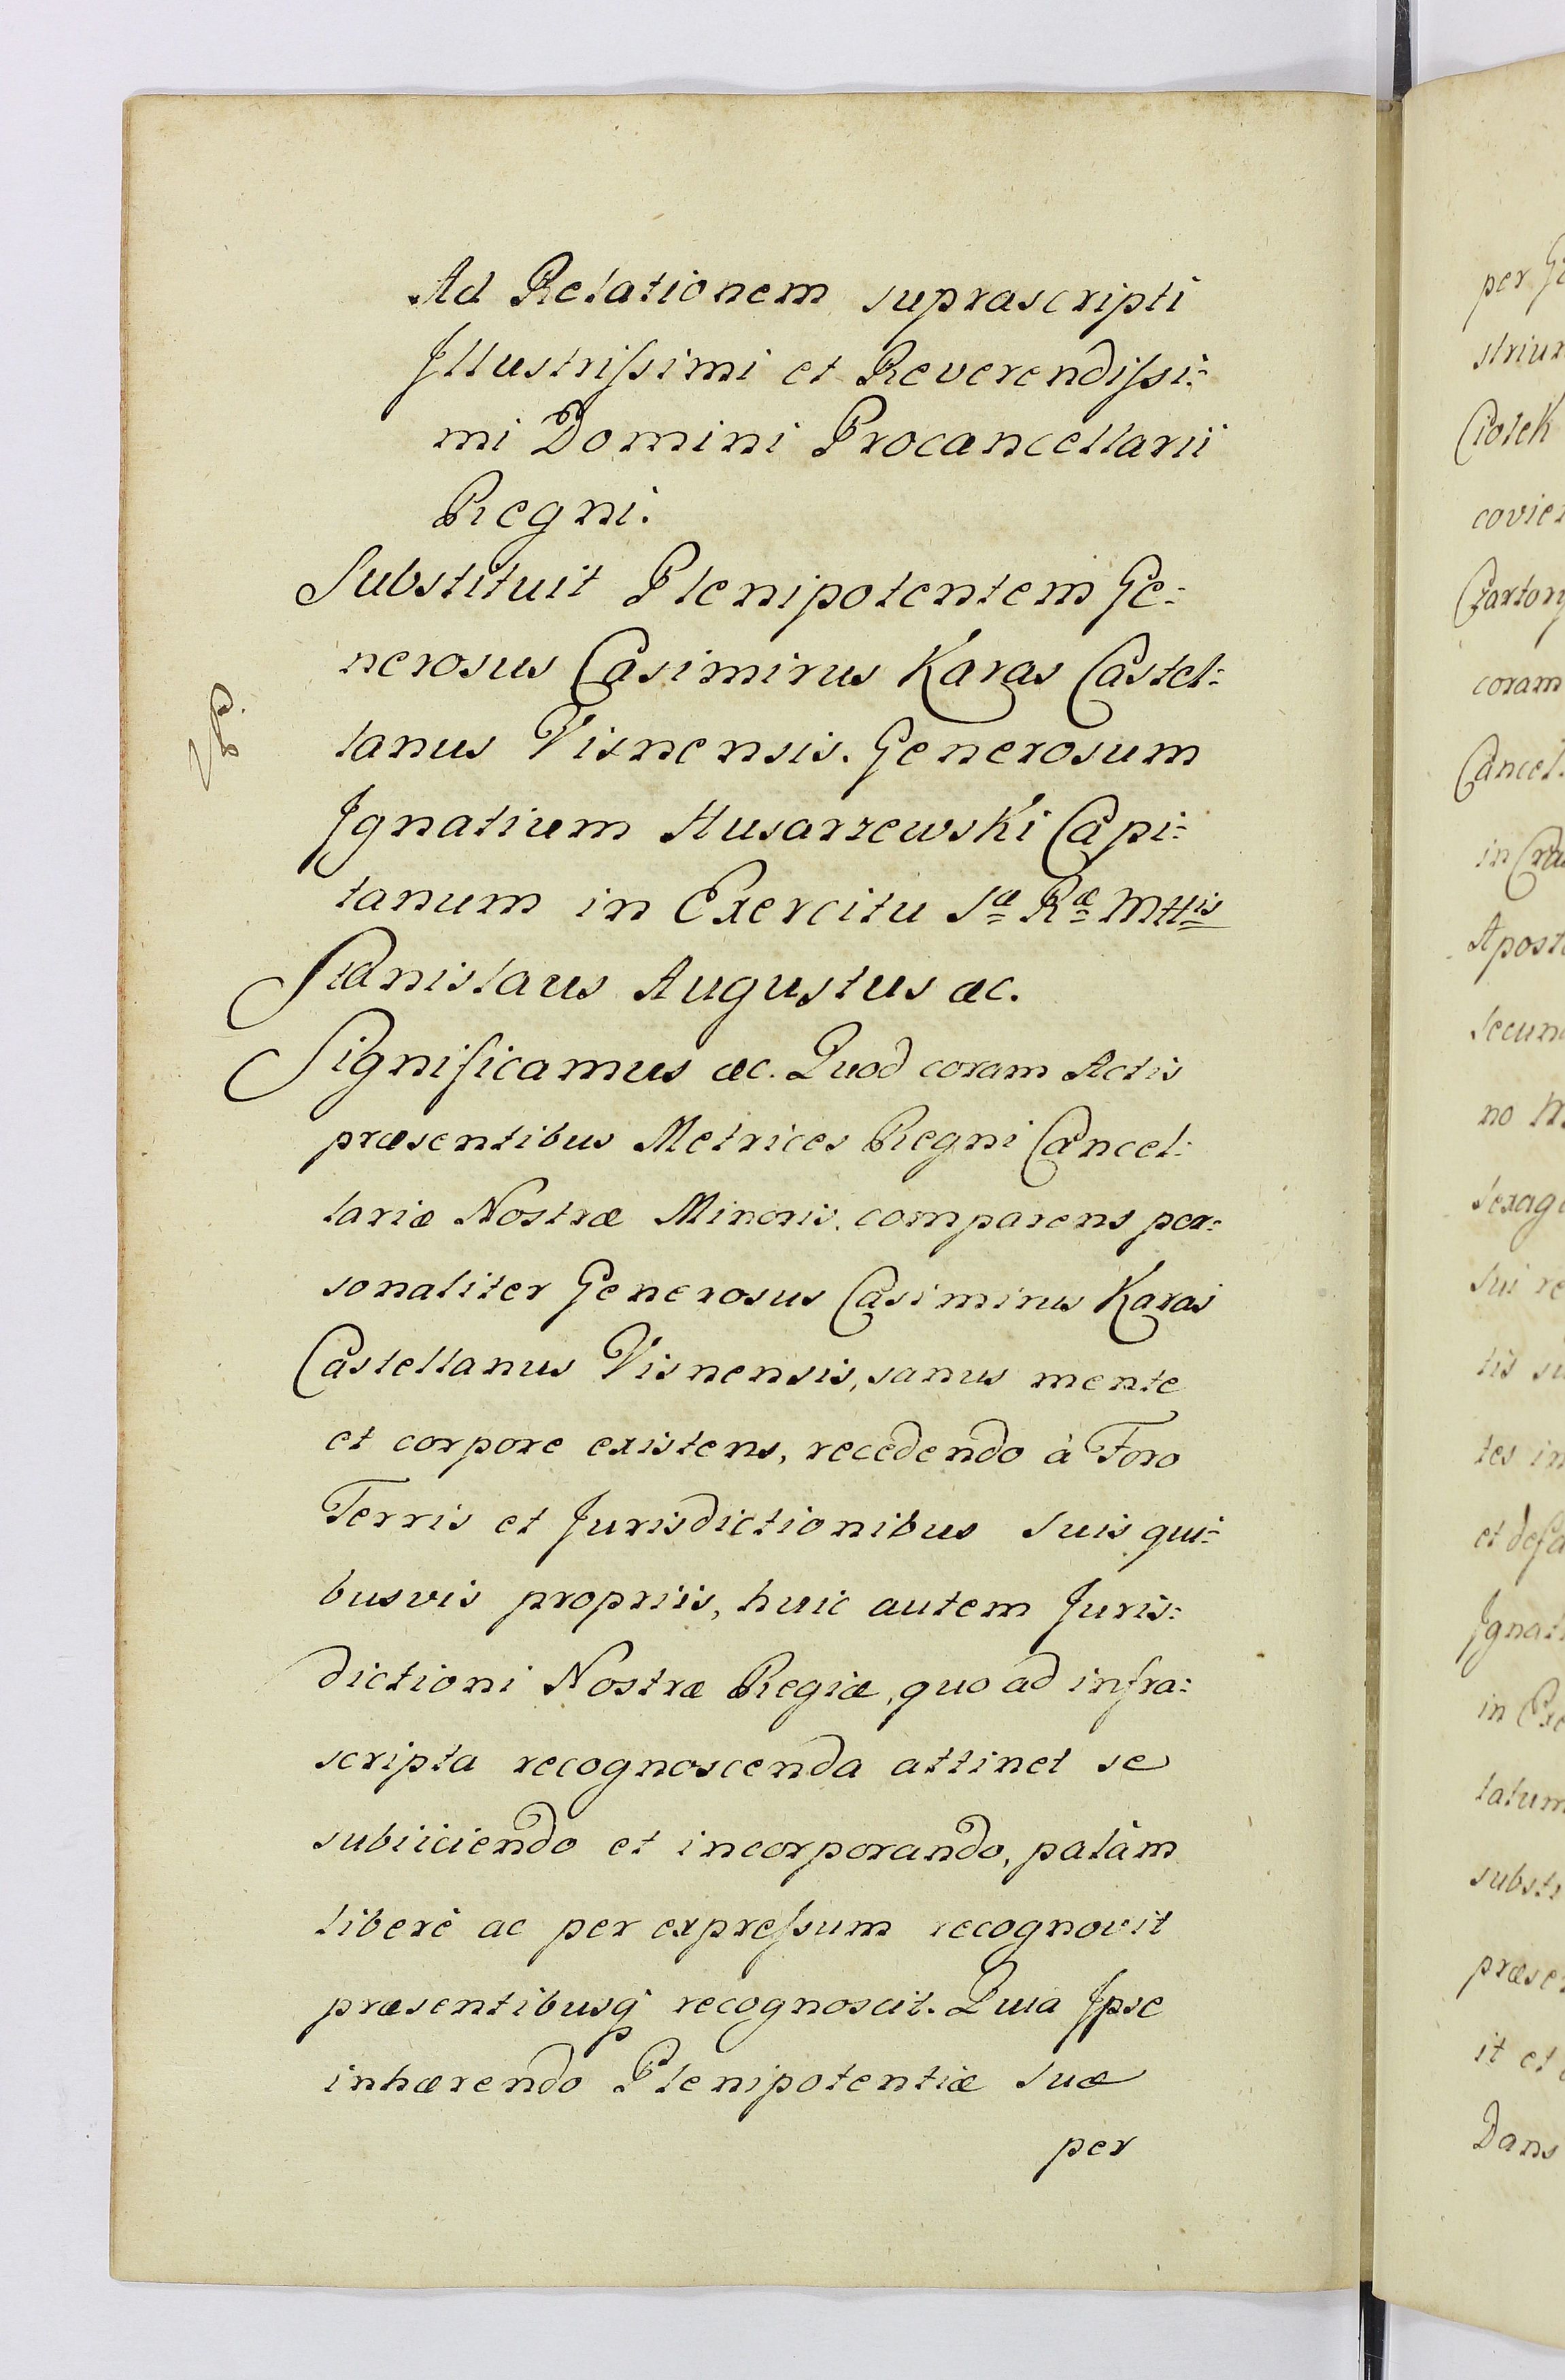 Ad Relationem suprascripti
Illustriſsimi et Reverendiſsi:
mi Domini Procancellarii
Regni.
Substituit Plenipotentem Ge:
nerosus Casimirus Karas Castel:
lanus Visnensis. Generosum
Ignatium Husarzewski Capi:
tanum in Exercitu Sæ Ræ Mttis
Stanislaus Augustus æc.
Significamus æc. Quod coram Actis
præsentibus Metrices Regni Cancel:
lariæ Nostræ Minoris, comparens per:
sonaliter Generosus Casimirus Karas
Castellanus Visnensis, sanus mente
et corpore existens, recedendo à Foro
Terris et Jurisdictionibus suis qui:
busvis propriis, huic autem Juris:
dictioni Nostræ Regiæ, quo ad infra:
scripta recognoscenda attinet se
subiiciendo et incorporando, palàm
liberè ac per expreſsum recognovit
præsentibusq recognoscit. Quia Ipse
inhærendo Plenipotentiæ suæ
per
per
Ciolek
coram
Cancel:
in
Apost
Secun
no
Sexag
sui re
lis su
tes in
et
Ignati
in Exe
tatum
substi
præse
it et
Dans